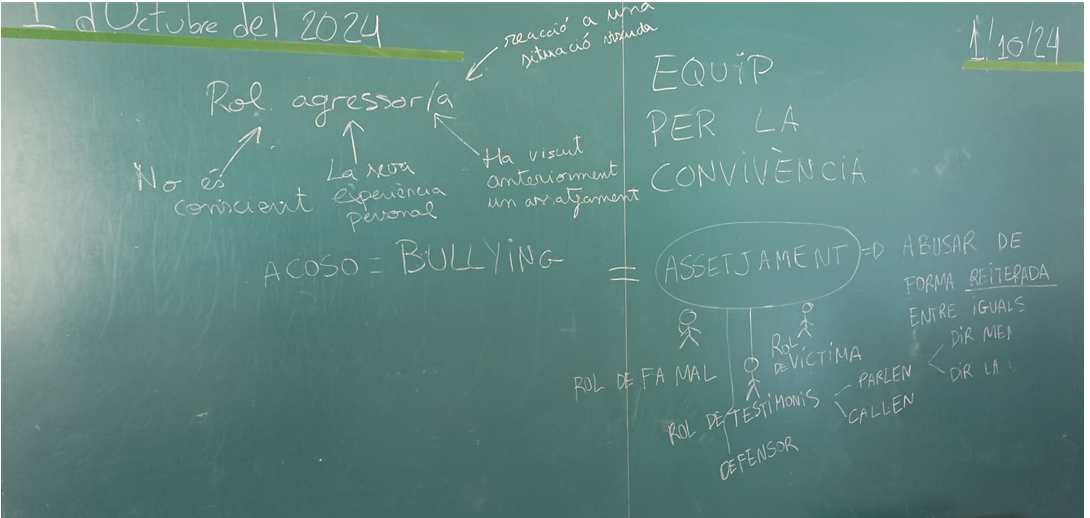 1 d'Octubre del 2024
reacció a una
situació viscuda
Rol agressor/a
No és
conscient
La seva
experiència
personal
Ha viscut
anteriorment
un assatjament
ACOSO = BULLYING = ASSETJAMENT => ABUSAR DE
FORMA REITERADA
ENTRE IGUALS
1/10/24
EQUIP
PER LA
CONVIVÈNCIA
ROL DE FA MAL
ROL
DE VÍCTIMA
ROL DE TESTIMONIS
PARLEN
DIR
DIR LA
CALLEN
DEFENSOR